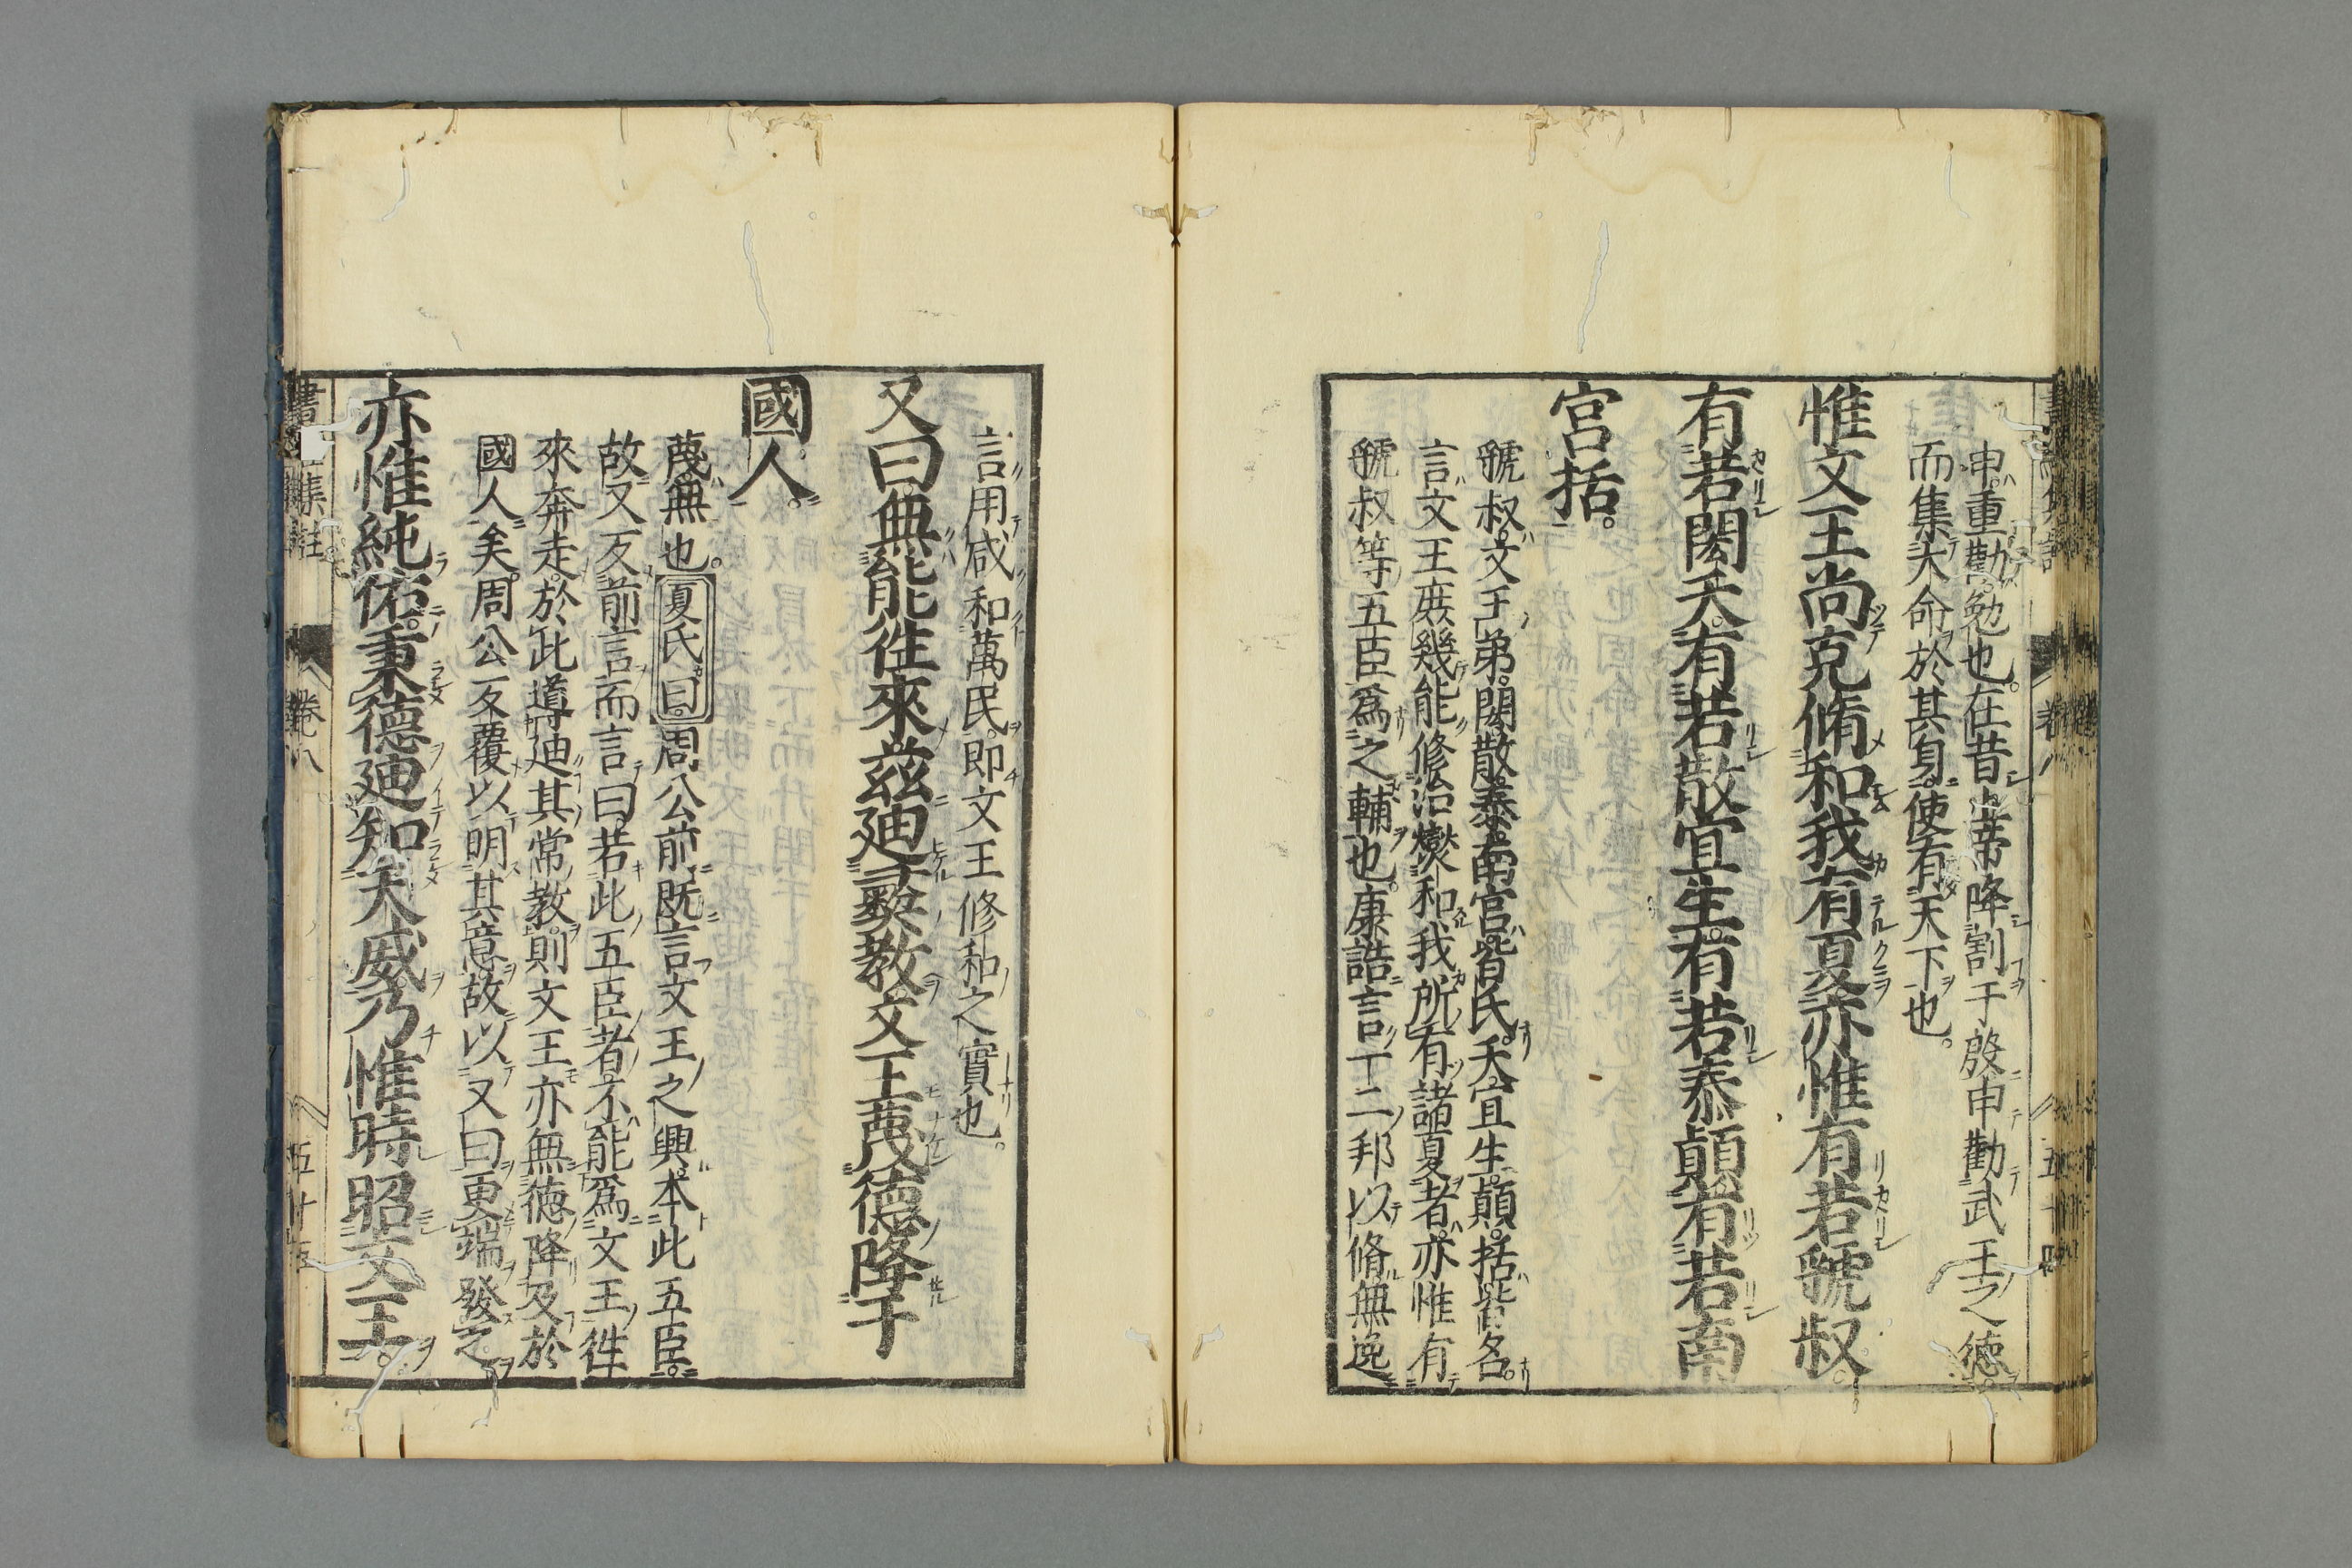 申重勸勉也在昔上帝降割于殷申勸武王之德
而集大命於其身使有天下也
惟文王尚克脩和我有夏亦惟有若虢叔
有若閎夭有若散宜生有若泰顛有若南
宮括
虢叔文王弟閎散泰南宮皆氏夭宜生顛括皆名
言文王庶幾能修治燮和我所有諸夏者亦惟有
虢叔等五臣爲之輔也康誥言一二邦以脩無逸
言用咸和萬民即文王修和之實也
又曰無能往來茲迪彞教文王蔑德降于
國人
蔑無也夏氏曰周公前既言文王之興本此五臣
故又反前言而言曰若此五臣者不能爲文王徃
來奔走於此導迪其常教則文王亦無德降及於
國人矣周公反覆以明其意故以又曰更端發之
亦惟純佑秉德迪知天威乃惟時昭文王
書 集註 卷八 五十五